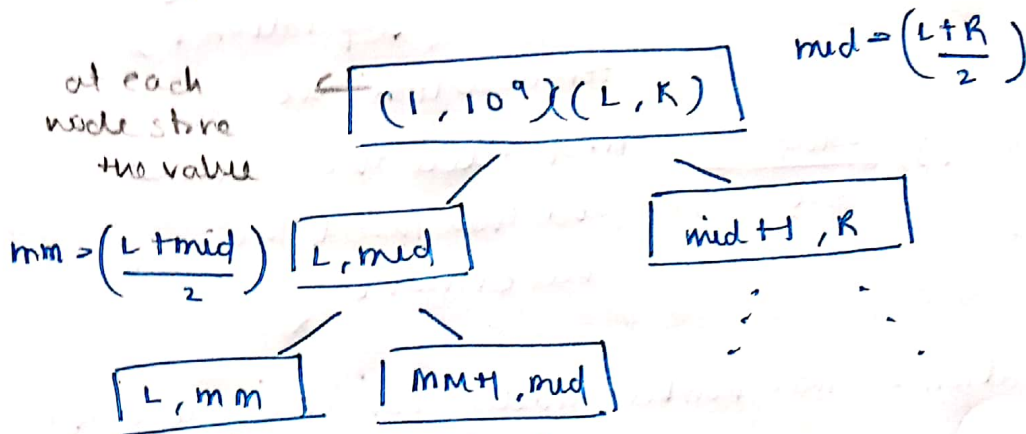 mid = (L+R/2)
at each
node store
the value
(1, 10⁹)(L, R)
mm = (L+mid/2)
L, mid
mid+1, R
L, mm
MM+1, mid